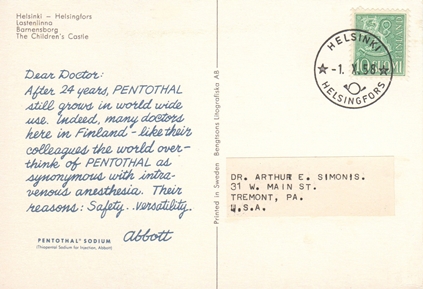 Helsinki – Helsingfors
Lastenlinna
Barnensborg
The Children's Castle
Dear Doctor:
After 24 years, PENTOTHAL
still grows in world wide
use. Indeed, many doctors
here in Finland - like their
colleagues the world over-
think of PENTOTHAL as
synonymous with intra-
venous anesthesia. Their
reasons: Safety.. versatility.
Abbott
PENTOTHAL® SODIUM
(Thiopental Sodium for Injection, Abbott)
Printed in Sweden Bengtsons Litografiska AB
HELSINKI
-1. X.58
HELSINGFORS
10
DR. ARTHUR E. SIMONIS.
31 W. MAIN ST.
TREMONT, PA.
U.S.A.